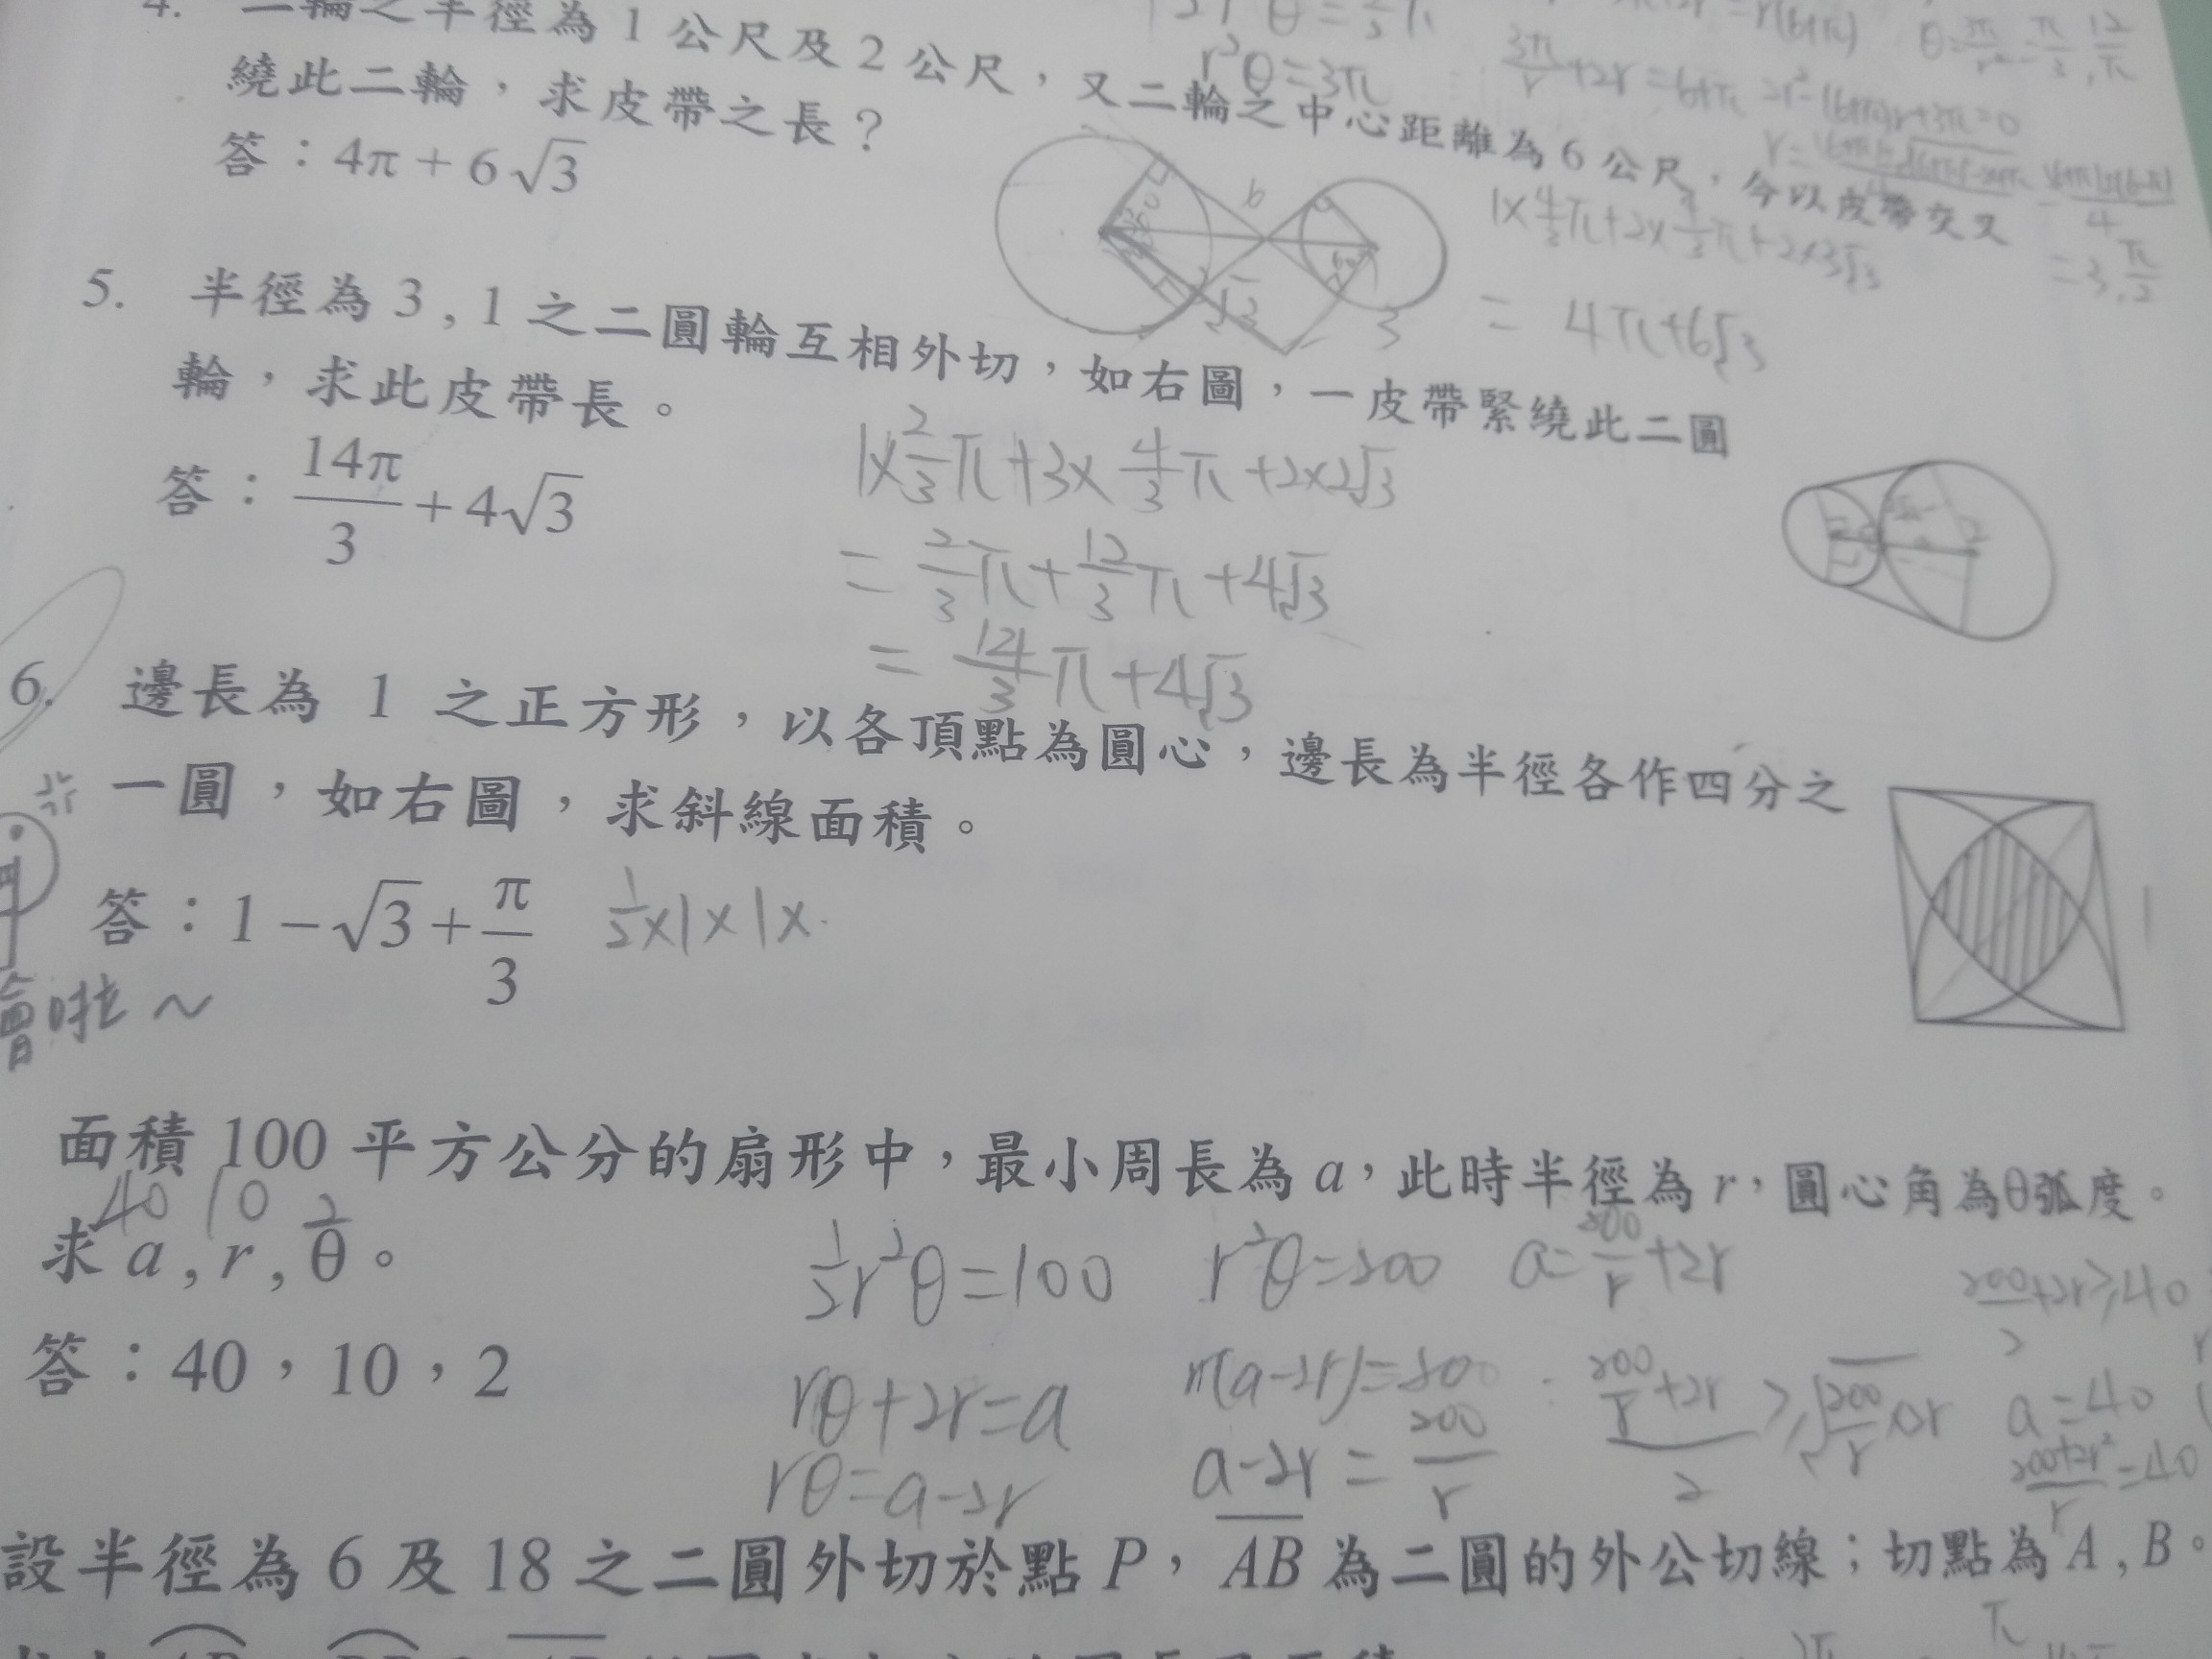 4. 二輪之半徑為 1 公尺及 2 公尺，又二輪之中心距離為 6 公尺，今以皮帶交叉
繞此二輪，求皮帶之長？
答：4π + 6√3
r²θ=3π
6
3
1×4/3π+2×4/3π+2×3√3
= 4π+6√3
5. 半徑為 3 , 1 之二圓輪互相外切，如右圖，一皮帶緊繞此二圓
輪，求此皮帶長。
答：14π/3 + 4√3
1×2/3π+3×4/3π+2×2√3
= 2/3π+12/3π+4√3
= 14/3π+4√3
6. 邊長為 1 之正方形，以各頂點為圓心，邊長為半徑各作四分之
一圓，如右圖，求斜線面積。
答：1 − √3 + π/3
1/2×1×1×
1
會啦～
面積 100 平方公分的扇形中，最小周長為 a，此時半徑為 r，圓心角為θ弧度。
40 10 2
求 a , r , θ。
答：40，10，2
1/2r²θ=100
r²θ=200
a=200/r+2r
rθ+2r=a
r(a-2r)=200
rθ=a-2r
a-2r=200/r
a=40
設半徑為 6 及 18 之二圓外切於點 P，AB 為二圓的外公切線；切點為 A , B。